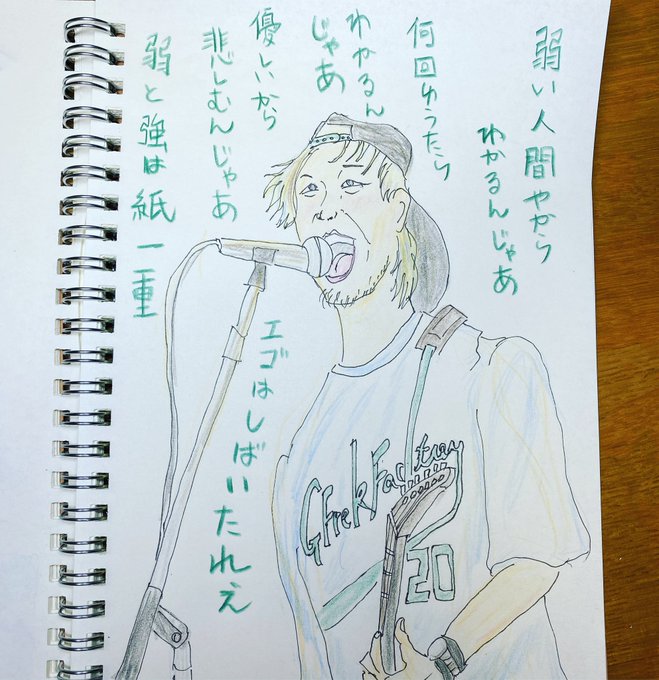 弱い人間やから
わかるんじゃあ
何回ゆうたら
わかるん
じゃあ
優しいから
悲しむんじゃあ
弱と強は紙一重
エゴはしばいたれえ
GFrek Factory
20